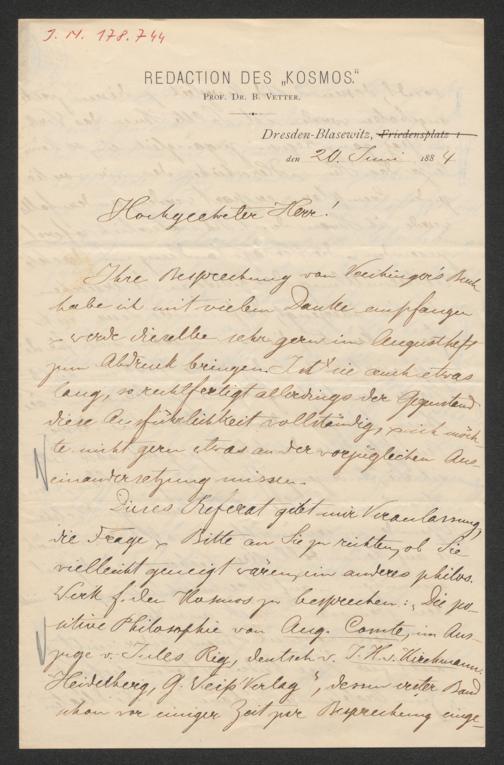 J. N. 178.744
REDACTION DES „KOSMOS.“
PROF. DR. B. VETTER.
Dresden-Blasewitz, Friedensplatz 1
den 20. Juni 1884
Hochgeehrter Herr!
Ihre Besprechung von Veihinger's Buch
habe ich mit vielem Danke empfangen
werde dieselbe sehr gern im Augustheft
zum Abdruck bringen. Ist sie auch etwas
lang, so rechtfertigt allerdings der Gegenstand
diese Ausführlichkeit vollständig, u. ich möch-
te nicht gern etwas an der vorzüglichen Aus-
einandersetzung missen.
Dieses Referat gibt mir Veranlassung,
die Frage u. Bitte an Sie zu richten, ob Sie
vielleicht geneigt wären, ein anderes philos.
Werk f. den Kosmos zu besprechen: „Die po-
sitive Philosophie von Aug. Comte, im Aus-
zuge v. Jules Rig, deutsch v. J. H. v. Kirchmann.
Heidelberg, G. Weiß Verlag“, dessen erster Band
schon vor einiger Zeit zur Besprechung einge-